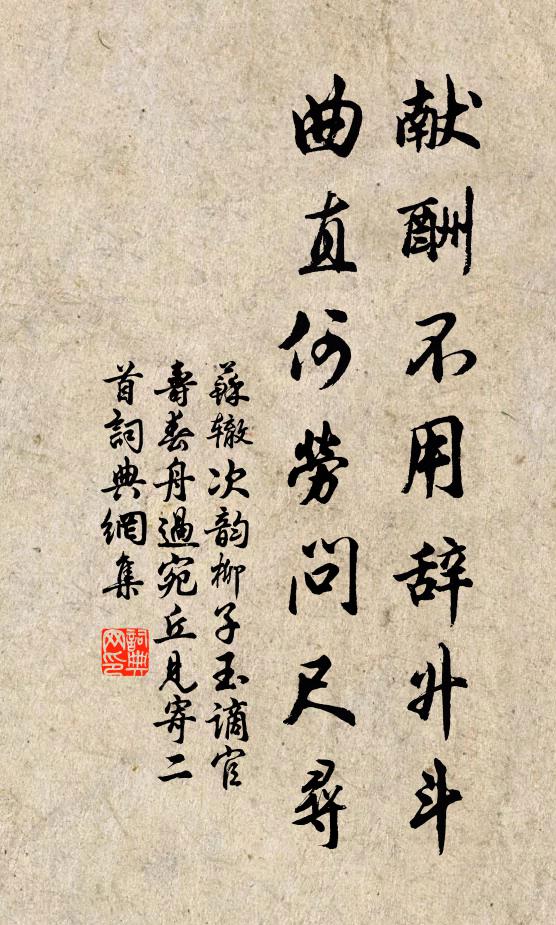 献酬不用辞升斗
曲直何劳問尺尋
蘇辙次韵柳子玉謫官
壽春舟過宛丘見寄二
首詞典網集
詞典
网印